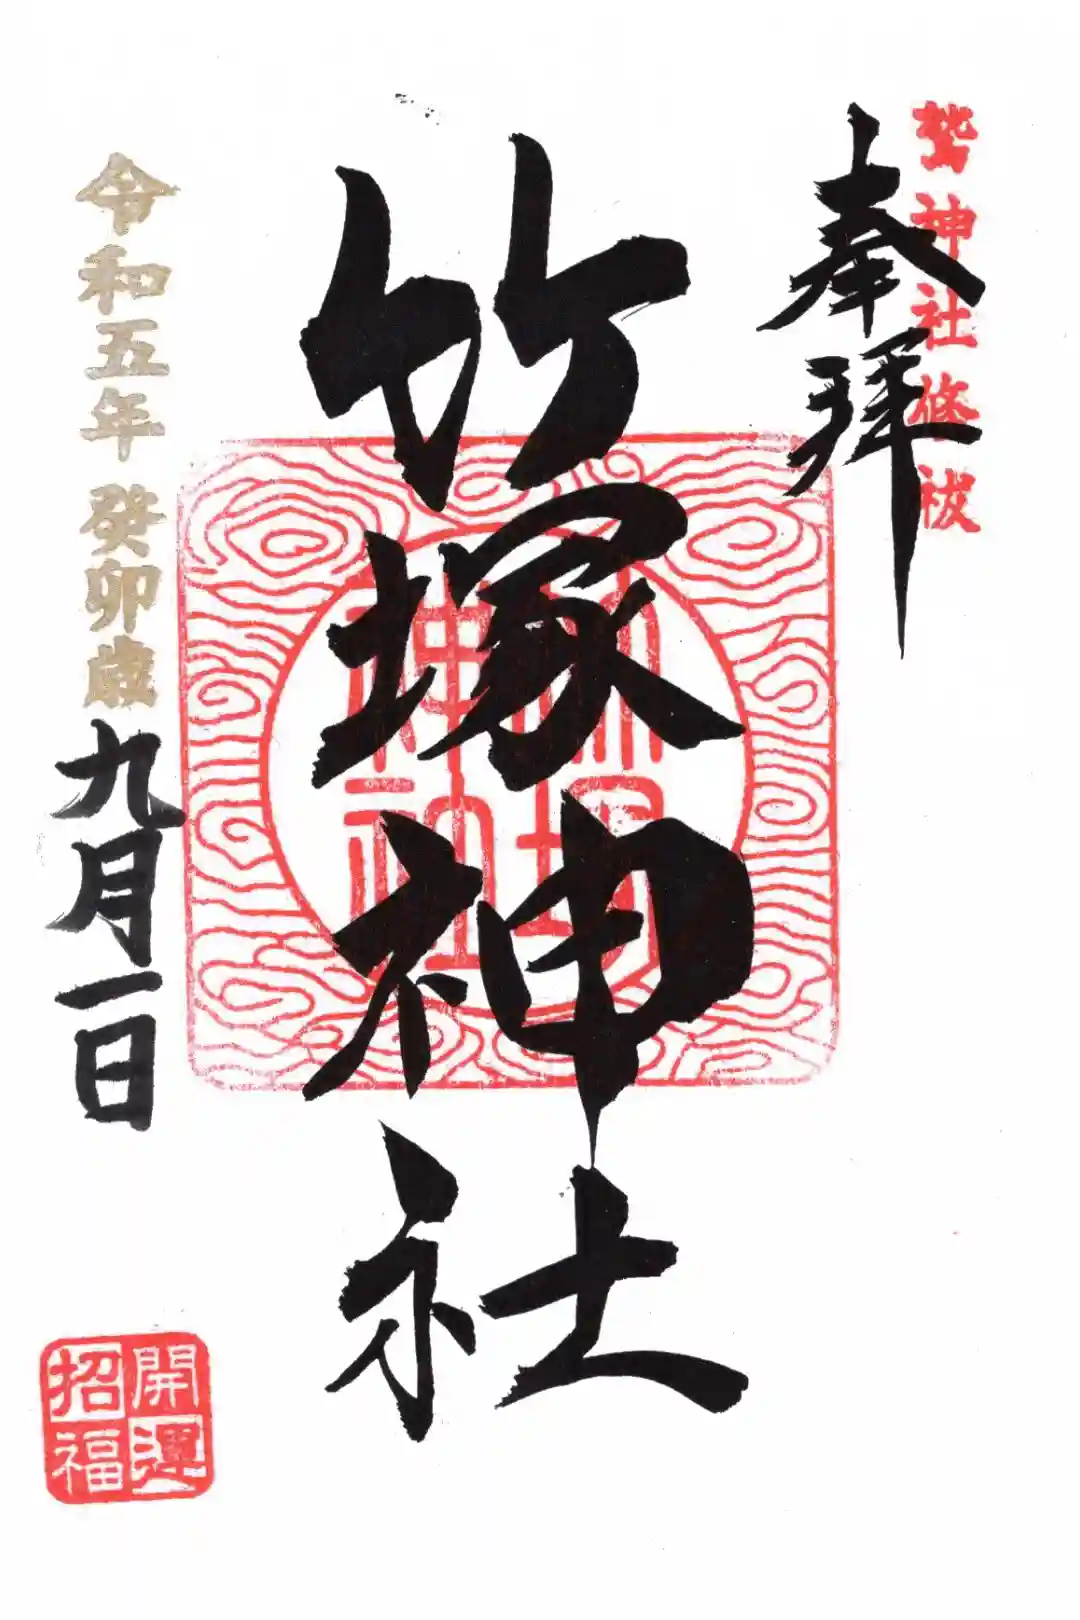 鷲神社修祓
奉拝
竹塚神社
竹塚
神社
令和五年 癸卯歳
九月一日
開運
招福